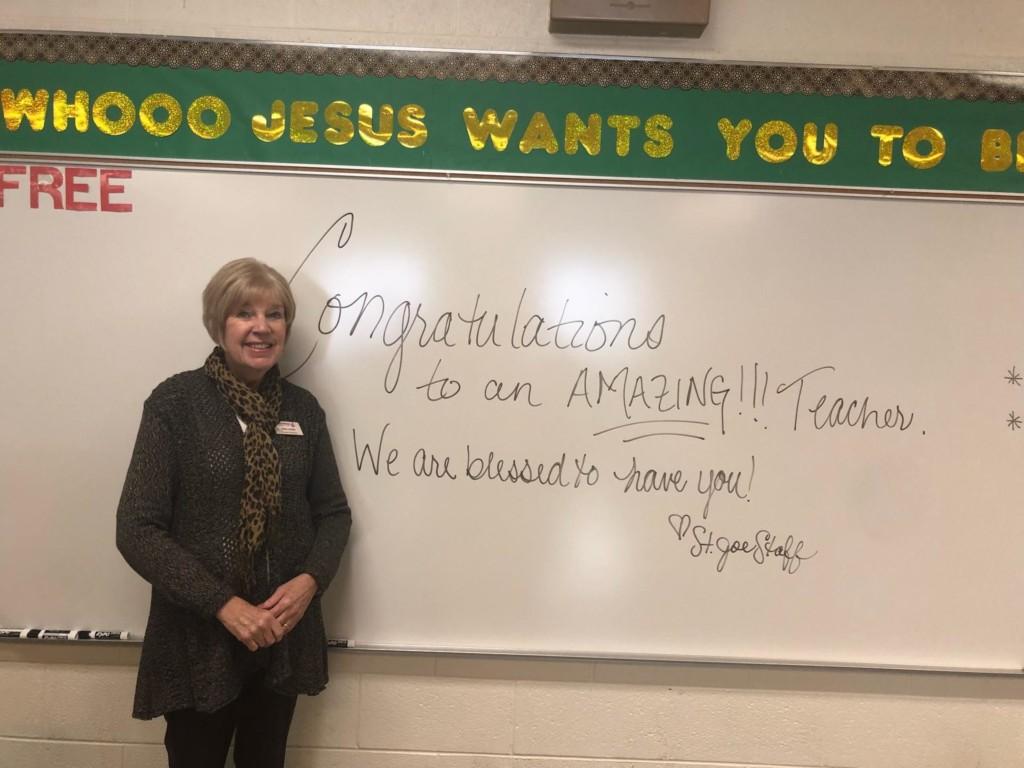 WHOOO JESUS WANTS YOU TO BE
FREE
Congratulations
to an AMAZING!!! Teacher.
We are blessed to have you!
♡ St. Joe Staff
*
*